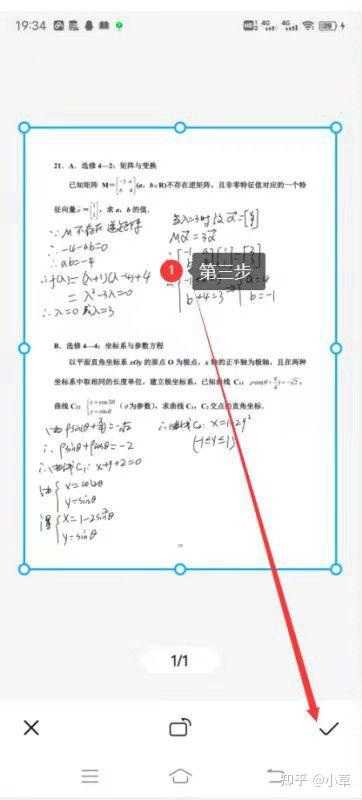 19:34
21. A. 选修 4—2: 矩阵与变换
已知矩阵 M=[-1 a; b 4](a, b∈R)不存在逆矩阵, 且非零特征值对应的一个特
征向量 α=[1; 1], 求 a, b 的值.
∵ M 不存在逆矩阵
∴ -4-ab=0
∴ ab=-4
∴ f(λ)=(λ+1)(λ-4)+4
= λ²-3λ=0
∴ λ=0 或 λ=3
当λ=3时
Mα=3α
1 第三步
b+4=3
a=4
b=-1
B. 选修 4—4: 坐标系与参数方程
以平面直角坐标系 xOy 的原点 O 为极点, x 轴的正半轴为极轴, 且在两种
坐标系中取相同的长度单位, 建立极坐标系, 已知曲线 C₁: ρsin(θ+π/4)=-√2,
曲线 C₂: {x=cos2θ y=sinθ (θ为参数), 求曲线 C₁, C₂ 交点的直角坐标.
ρsin(θ+π/4)=-√2
∴ ρsinθ+ρcosθ=-2
C₁: x+y+2=0
由{x=cos2θ
y=sinθ
得{x=1-2sin²θ
y=sinθ
C₂: x=1-2y²
(-1≤y≤1)
1/1
知乎 @小草